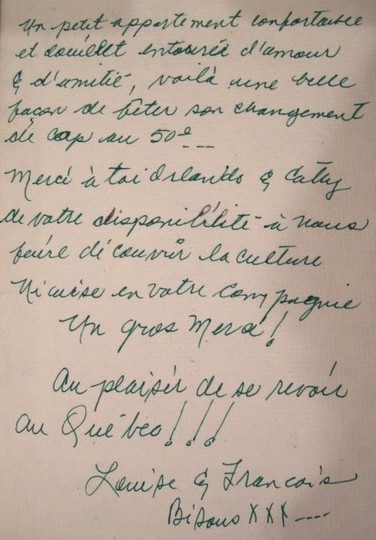 Un petit appartement confortable
et douillet entourée d'amour
& d'amitié, voilà une belle
façon de fêter son changement
de cap au 50e ---
Merci à toi Orlando & Cathy
de votre disponibilité à nous
faire découvrir la culture
Niçoise en votre compagnie
Un gros merci!
Au plaisir de se revoir
au Québec!!!
Louise & François
Bisous XXX ----